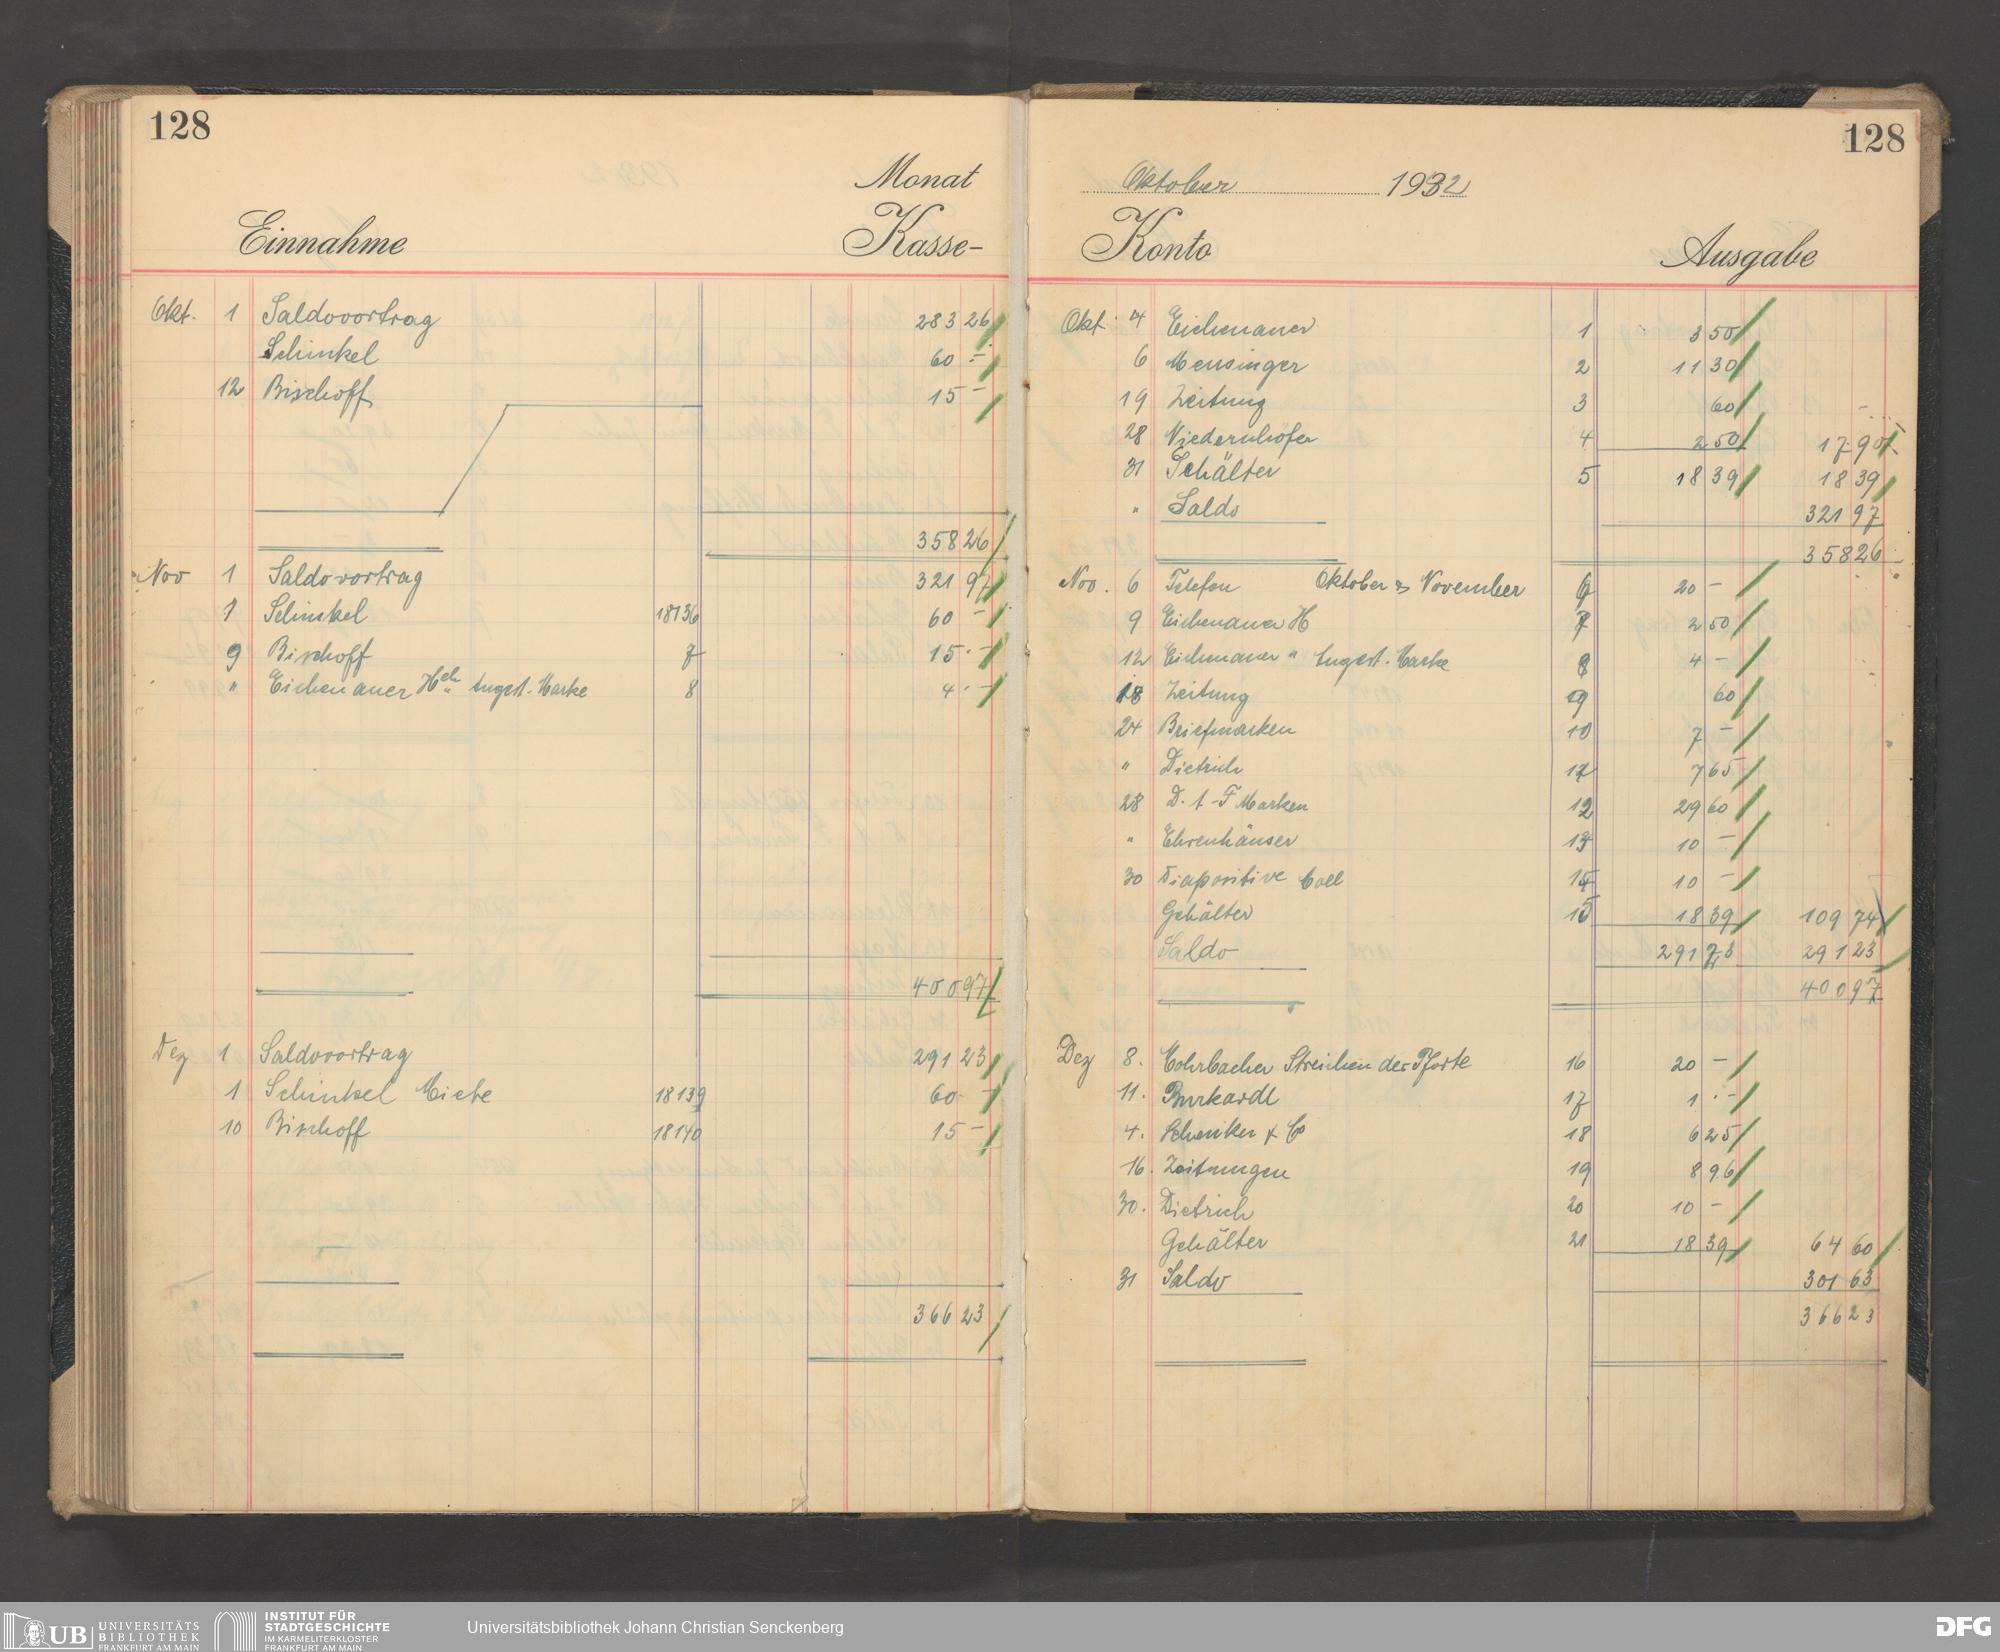 128
Monat
Einnahme Kasse-
Okt. 1 Saldovortrag 283 26
Schinkel 60 -
12 Bischoff 15 -
358 26
Nov 1 Saldovortrag 321 97
1 Schinkel 18136 60 -
9 Bischoff 7 15 -
" Eichenauer Hch Angest. Marke 8 4 -
400 97
Dez 1 Saldovortrag 291 23
1 Schinkel Miete 18139 60 -
10 Bischoff 18140 15 -
366 23
128
Oktober 1932
Konto Ausgabe
Okt. 4 Eichenauer 1 3 50
6 Mensinger 2 11 30
19 Zeitung 3 60
28 Niedernhöfer 4 2 50 17 90
31 Gehälter 5 18 39 18 39
" Saldo 321 97
358 26
Nov. 6 Telefon Oktober & November 6 20 -
9 Eichenauer H 7 2 50
12 Eichenauer " Angest. Marke 8 4 -
18 Zeitung 9 60
24 Briefmarken 10 7 -
" Dietrich 11 7 65
28 D. A - F Marken 12 29 60
" Ehrenhäuser 13 10 -
30 Diapositive Coll 14 10 -
Gehälter 15 18 39 109 74
Saldo 291 23 291 23
400 97
Dez 8. Rohrbacher Streichen der Pforte 16 20 -
11. Burkardt 17 1 . -
4. Schenker & Co 18 6 25
16. Zeitungen 19 8 96
30. Dietrich 20 10 -
Gehälter 21 18 39 64 60
31 Saldo 301 63
366 23
UB UNIVERSITÄTS
BIBLIOTHEK
FRANKFURT AM MAIN
INSTITUT FÜR
STADTGESCHICHTE
IM KARMELITERKLOSTER
FRANKFURT AM MAIN
Universitätsbibliothek Johann Christian Senckenberg
DFG